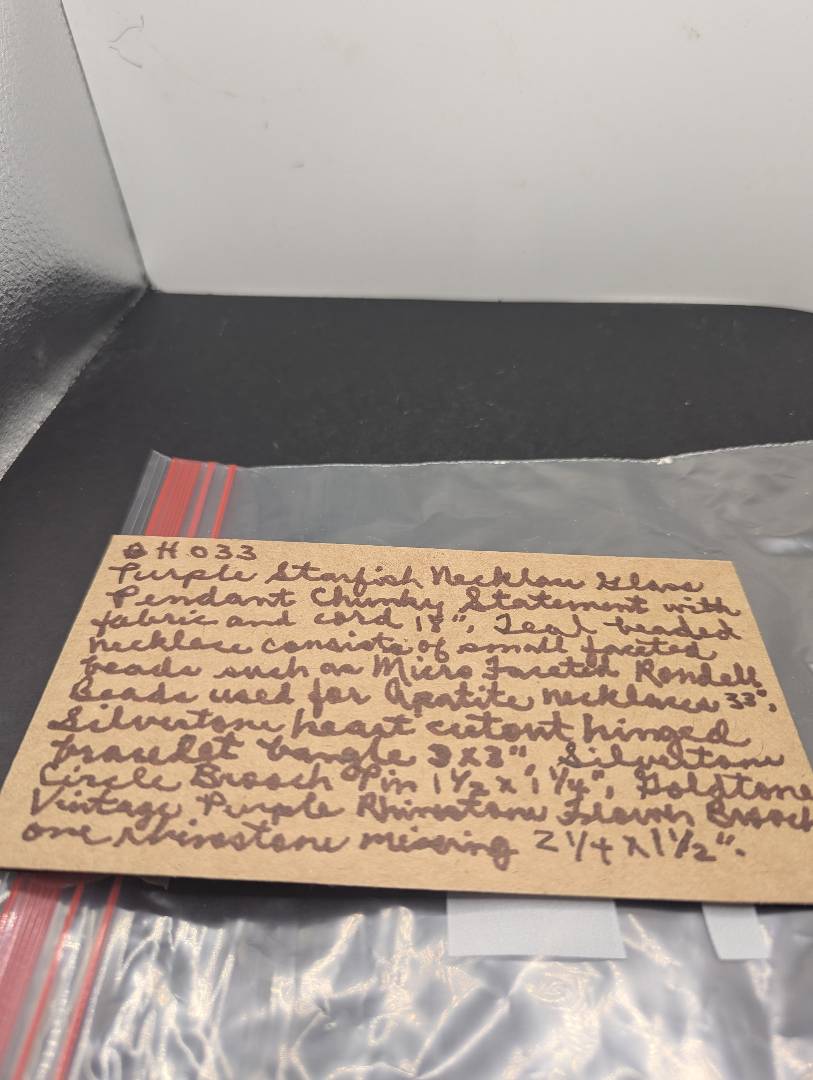 H033
Purple Starfish Necklace Glass
Pendant Chunky Statement with
fabric and cord 18", Teal beaded
necklace consists of small faceted
beads such as Micro Faceted Rondell
Beads used for Apatite necklaces 33",
Silvertone heart cutout hinged
bracelet bangle 3 x 3" Silvertone
Circle Brooch Pin 1 1/2 x 1 1/4", Goldtone
Vintage Purple Rhinestone Flower Brooch
one rhinestone missing 2 1/4 x 1 1/2".